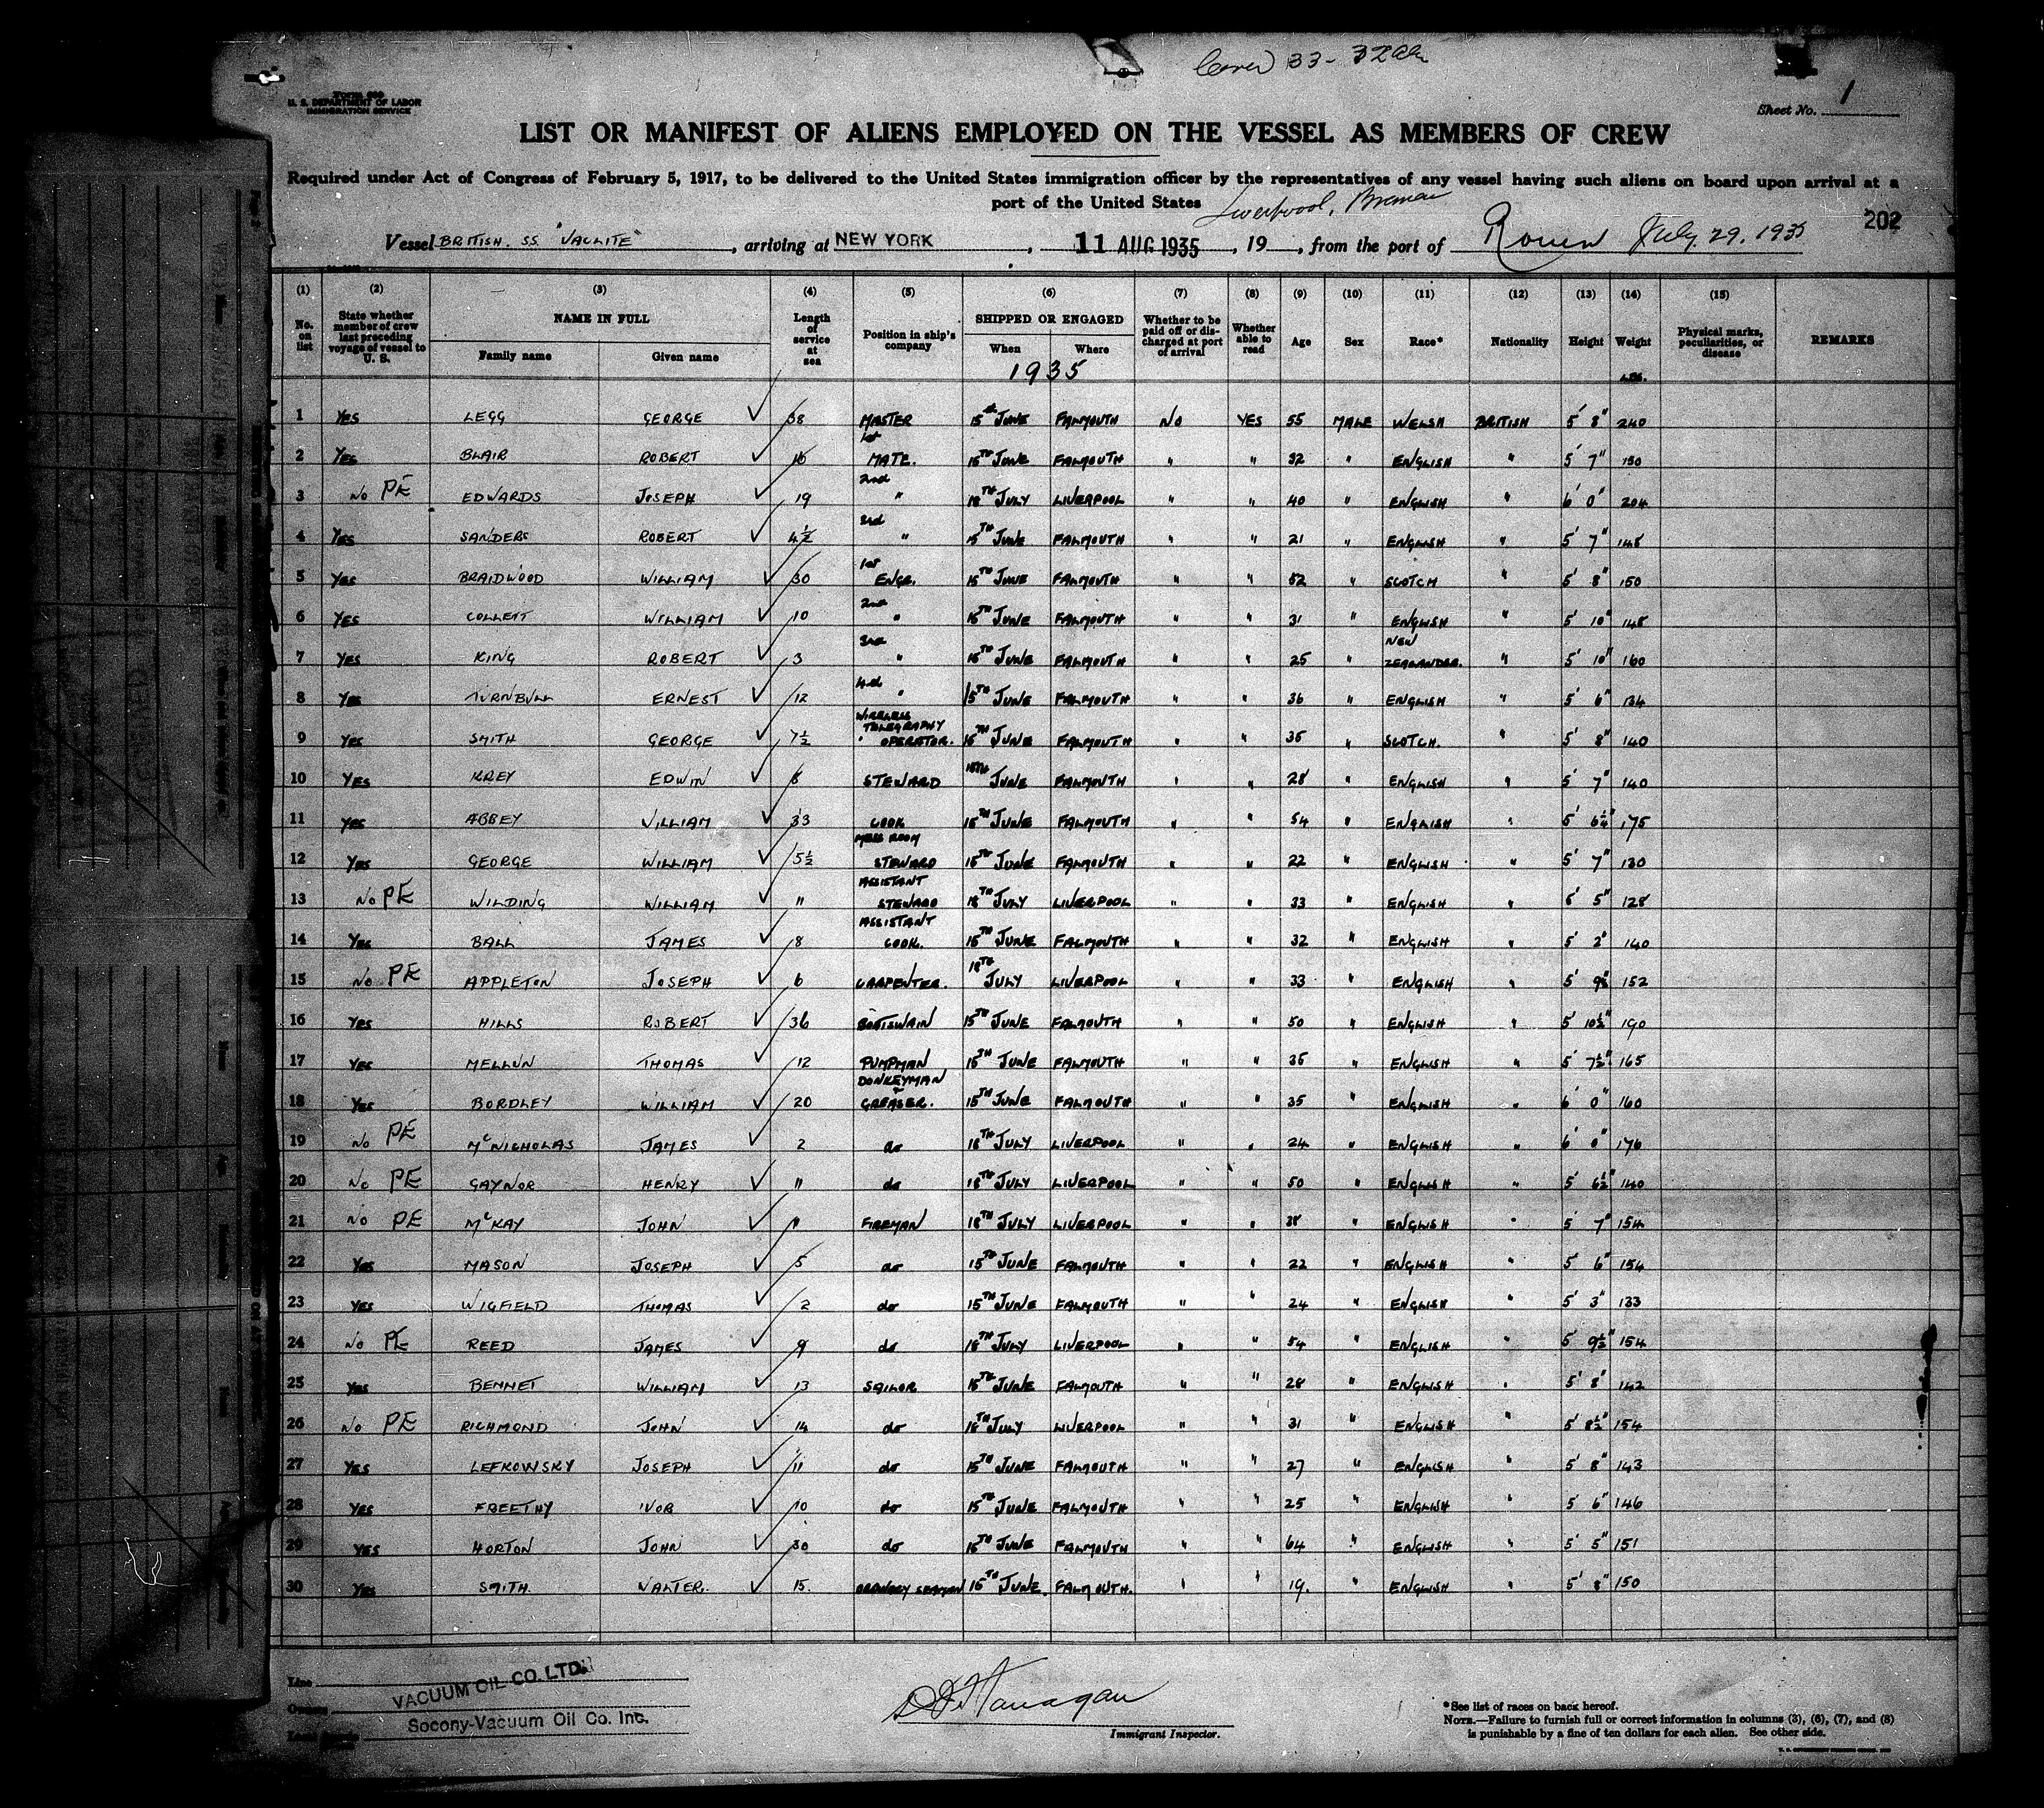 Cover 33-
Form 689
U. S. DEPARTMENT OF LABOR
IMMIGRATION SERVICE
Sheet No. 1
LIST OR MANIFEST OF ALIENS EMPLOYED ON THE VESSEL AS MEMBERS OF CREW
Required under Act of Congress of February 5, 1917, to be delivered to the United States immigration officer by the representatives of any vessel having such aliens on board upon arrival at a
port of the United States
Liverpool, Bremen
202
Vessel BRITISH. SS "VACLITE", arriving at NEW YORK, 11 AUG 1935, 19, from the port of Rouen July 29, 1935
(1) (2) (3) (4) (5) (6) (7) (8) (9) (10) (11) (12) (13) (14) (15)
No. on list State whether member of crew last preceding voyage of vessel to U. S. NAME IN FULL Family name Given name Length of service at sea Position in ship's company SHIPPED OR ENGAGED When Where Whether to be paid off or discharged at port of arrival Whether able to read Age Sex Race* Nationality Height Weight Physical marks, peculiarities, or disease REMARKS
1935 LBS.
1 YES LEGG GEORGE ✓ 38 MASTER 15th JUNE FALMOUTH NO YES 55 MALE WELSH BRITISH 5' 8" 240
2 YES BLAIR ROBERT ✓ 16 1st MATE. 15TH JUNE FALMOUTH " " 32 " ENGLISH " 5' 7" 150
3 NO PE EDWARDS JOSEPH ✓ 19 2nd " 18TH JULY LIVERPOOL " " 40 " ENGLISH " 6' 0" 204
4 YES SANDERS ROBERT ✓ 4½ 3rd " 15TH JUNE FALMOUTH " " 21 " ENGLISH " 5' 7" 148
5 YES BRAIDWOOD WILLIAM ✓ 30 1st ENGR. 15TH JUNE FALMOUTH " " 52 " SCOTCH " 5' 8" 150
6 YES COLLETT WILLIAM ✓ 10 2nd " 15TH JUNE FALMOUTH " " 31 " ENGLISH " 5' 10" 148
7 YES KING ROBERT ✓ 3 3rd " 15TH JUNE FALMOUTH " " 25 " NEW ZEALANDER. " 5' 10" 160
8 YES TURNBULL ERNEST ✓ 12 4th " 15TH JUNE FALMOUTH " " 36 " ENGLISH " 5' 6" 134
9 YES SMITH GEORGE ✓ 7½ WIRELESS TELEGRAPHY OPERATOR. 15TH JUNE FALMOUTH " " 35 " SCOTCH. " 5' 8" 140
10 YES KREY EDWIN ✓ 8 STEWARD 15TH JUNE FALMOUTH " " 28 " ENGLISH " 5' 7" 140
11 YES ABBEY WILLIAM ✓ 33 COOK 15TH JUNE FALMOUTH " " 54 " ENGLISH " 5' 6¼" 175
12 YES GEORGE WILLIAM ✓ 5½ MESS ROOM STEWARD 15TH JUNE FALMOUTH " " 22 " ENGLISH " 5' 7" 130
13 NO PE WILDING WILLIAM ✓ 11 ASSISTANT STEWARD 18TH JULY LIVERPOOL " " 33 " ENGLISH " 5' 5" 128
14 YES BALL JAMES ✓ 8 ASSISTANT COOK. 15TH JUNE FALMOUTH " " 32 " ENGLISH " 5' 2" 140
15 NO PE APPLETON JOSEPH ✓ 6 CARPENTER. 18TH JULY LIVERPOOL " " 33 " ENGLISH " 5' 152
16 YES HILLS ROBERT ✓ 36 BOATSWAIN 15TH JUNE FALMOUTH " " 50 " ENGLISH " 5' 10½" 190
17 YES MELLUN THOMAS ✓ 12 PUMPMAN 15TH JUNE FALMOUTH " " 35 " ENGLISH " 5' 7½" 165
18 YES BORDLEY WILLIAM ✓ 20 DONKEYMAN GREASER. 15TH JUNE FALMOUTH " " 35 " ENGLISH " 6' 0" 160
19 NO PE McNICHOLAS JAMES ✓ 2 do 18TH JULY LIVERPOOL " " 24 " ENGLISH " 6' 0" 176
20 NO PE GAYNOR HENRY ✓ 11 do 18TH JULY LIVERPOOL " " 50 " ENGLISH " 5' 6½" 140
21 NO PE McKAY JOHN ✓ FIREMAN 18TH JULY LIVERPOOL " " 38 " ENGLISH " 5' 7" 154
22 YES MASON JOSEPH ✓ 5 do 15TH JUNE FALMOUTH " " 22 " ENGLISH " 5' 6" 154
23 YES WIGFIELD THOMAS ✓ 2 do 15TH JUNE FALMOUTH " " 24 " ENGLISH " 5' 3" 133
24 NO PE REED JAMES ✓ 9 do 18TH JULY LIVERPOOL " " 54 " ENGLISH " 5' 9½" 154
25 YES BENNET WILLIAM ✓ 13 SAILOR 15TH JUNE FALMOUTH " " 28 " ENGLISH " 5' 8" 142
26 NO PE RICHMOND JOHN ✓ 14 do 18TH JULY LIVERPOOL " " 31 " ENGLISH " 5' 8½" 154
27 YES LEFKOWSKY JOSEPH ✓ 11 do 15TH JUNE FALMOUTH " " 27 " ENGLISH " 5' 8" 143
28 YES FREETHY IVOR ✓ 10 do 15TH JUNE FALMOUTH " " 25 " ENGLISH " 5' 6" 146
29 YES HORTON JOHN ✓ 30 do 15TH JUNE FALMOUTH " " 64 " ENGLISH " 5' 5" 151
30 YES SMITH. WALTER. ✓ 15. ORDINARY SEAMAN 15TH JUNE. FALMOUTH. " " 19. " ENGLISH " 5' 8" 150
Line
VACUUM OIL CO. LTD.
Owners
Socony-Vacuum Oil Co. Inc.
D Flanagan
Immigrant Inspector.
*See list of races on back hereof.
NOTE.—Failure to furnish full or correct information in columns (3), (6), (7), and (8)
is punishable by a fine of ten dollars for each alien. See other side.